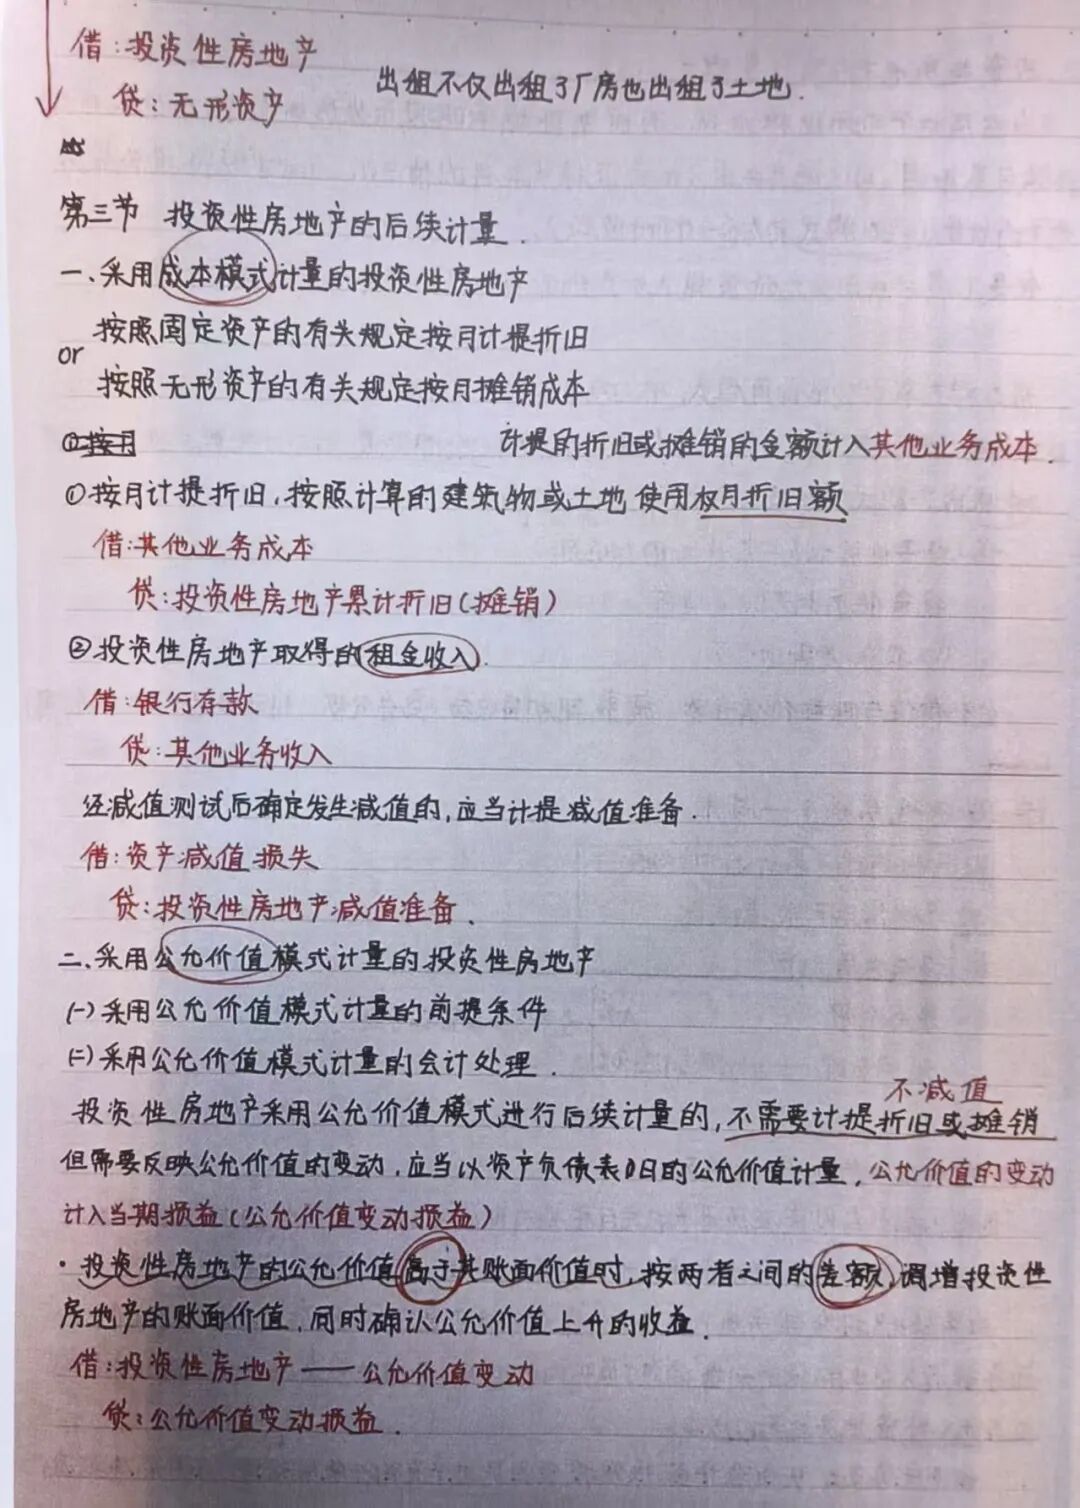 借：投资性房地产
出租不仅出租了厂房也出租了土地.
贷：无形资产
第三节 投资性房地产的后续计量.
一、采用成本模式计量的投资性房地产
按照固定资产的有关规定按月计提折旧
or
按照无形资产的有关规定按月摊销成本
①按月
计提的折旧或摊销的金额计入其他业务成本.
①按月计提折旧，按照计算的建筑物或土地使用权月折旧额
借：其他业务成本
贷：投资性房地产累计折旧（摊销）
②投资性房地产取得的租金收入.
借：银行存款
贷：其他业务收入
经减值测试后确定发生减值的，应当计提减值准备.
借：资产减值损失
贷：投资性房地产减值准备.
二、采用公允价值模式计量的投资性房地产
(一)采用公允价值模式计量的前提条件
(二)采用公允价值模式计量的会计处理.
不减值
投资性房地产采用公允价值模式进行后续计量的，不需要计提折旧或摊销
但需要反映公允价值的变动，应当以资产负债表日的公允价值计量，公允价值的变动
计入当期损益（公允价值变动损益）
·投资性房地产的公允价值高于其账面价值时，按两者之间的差额，调增投资性
房地产的账面价值，同时确认公允价值上升的收益.
借：投资性房地产——公允价值变动
贷：公允价值变动损益.